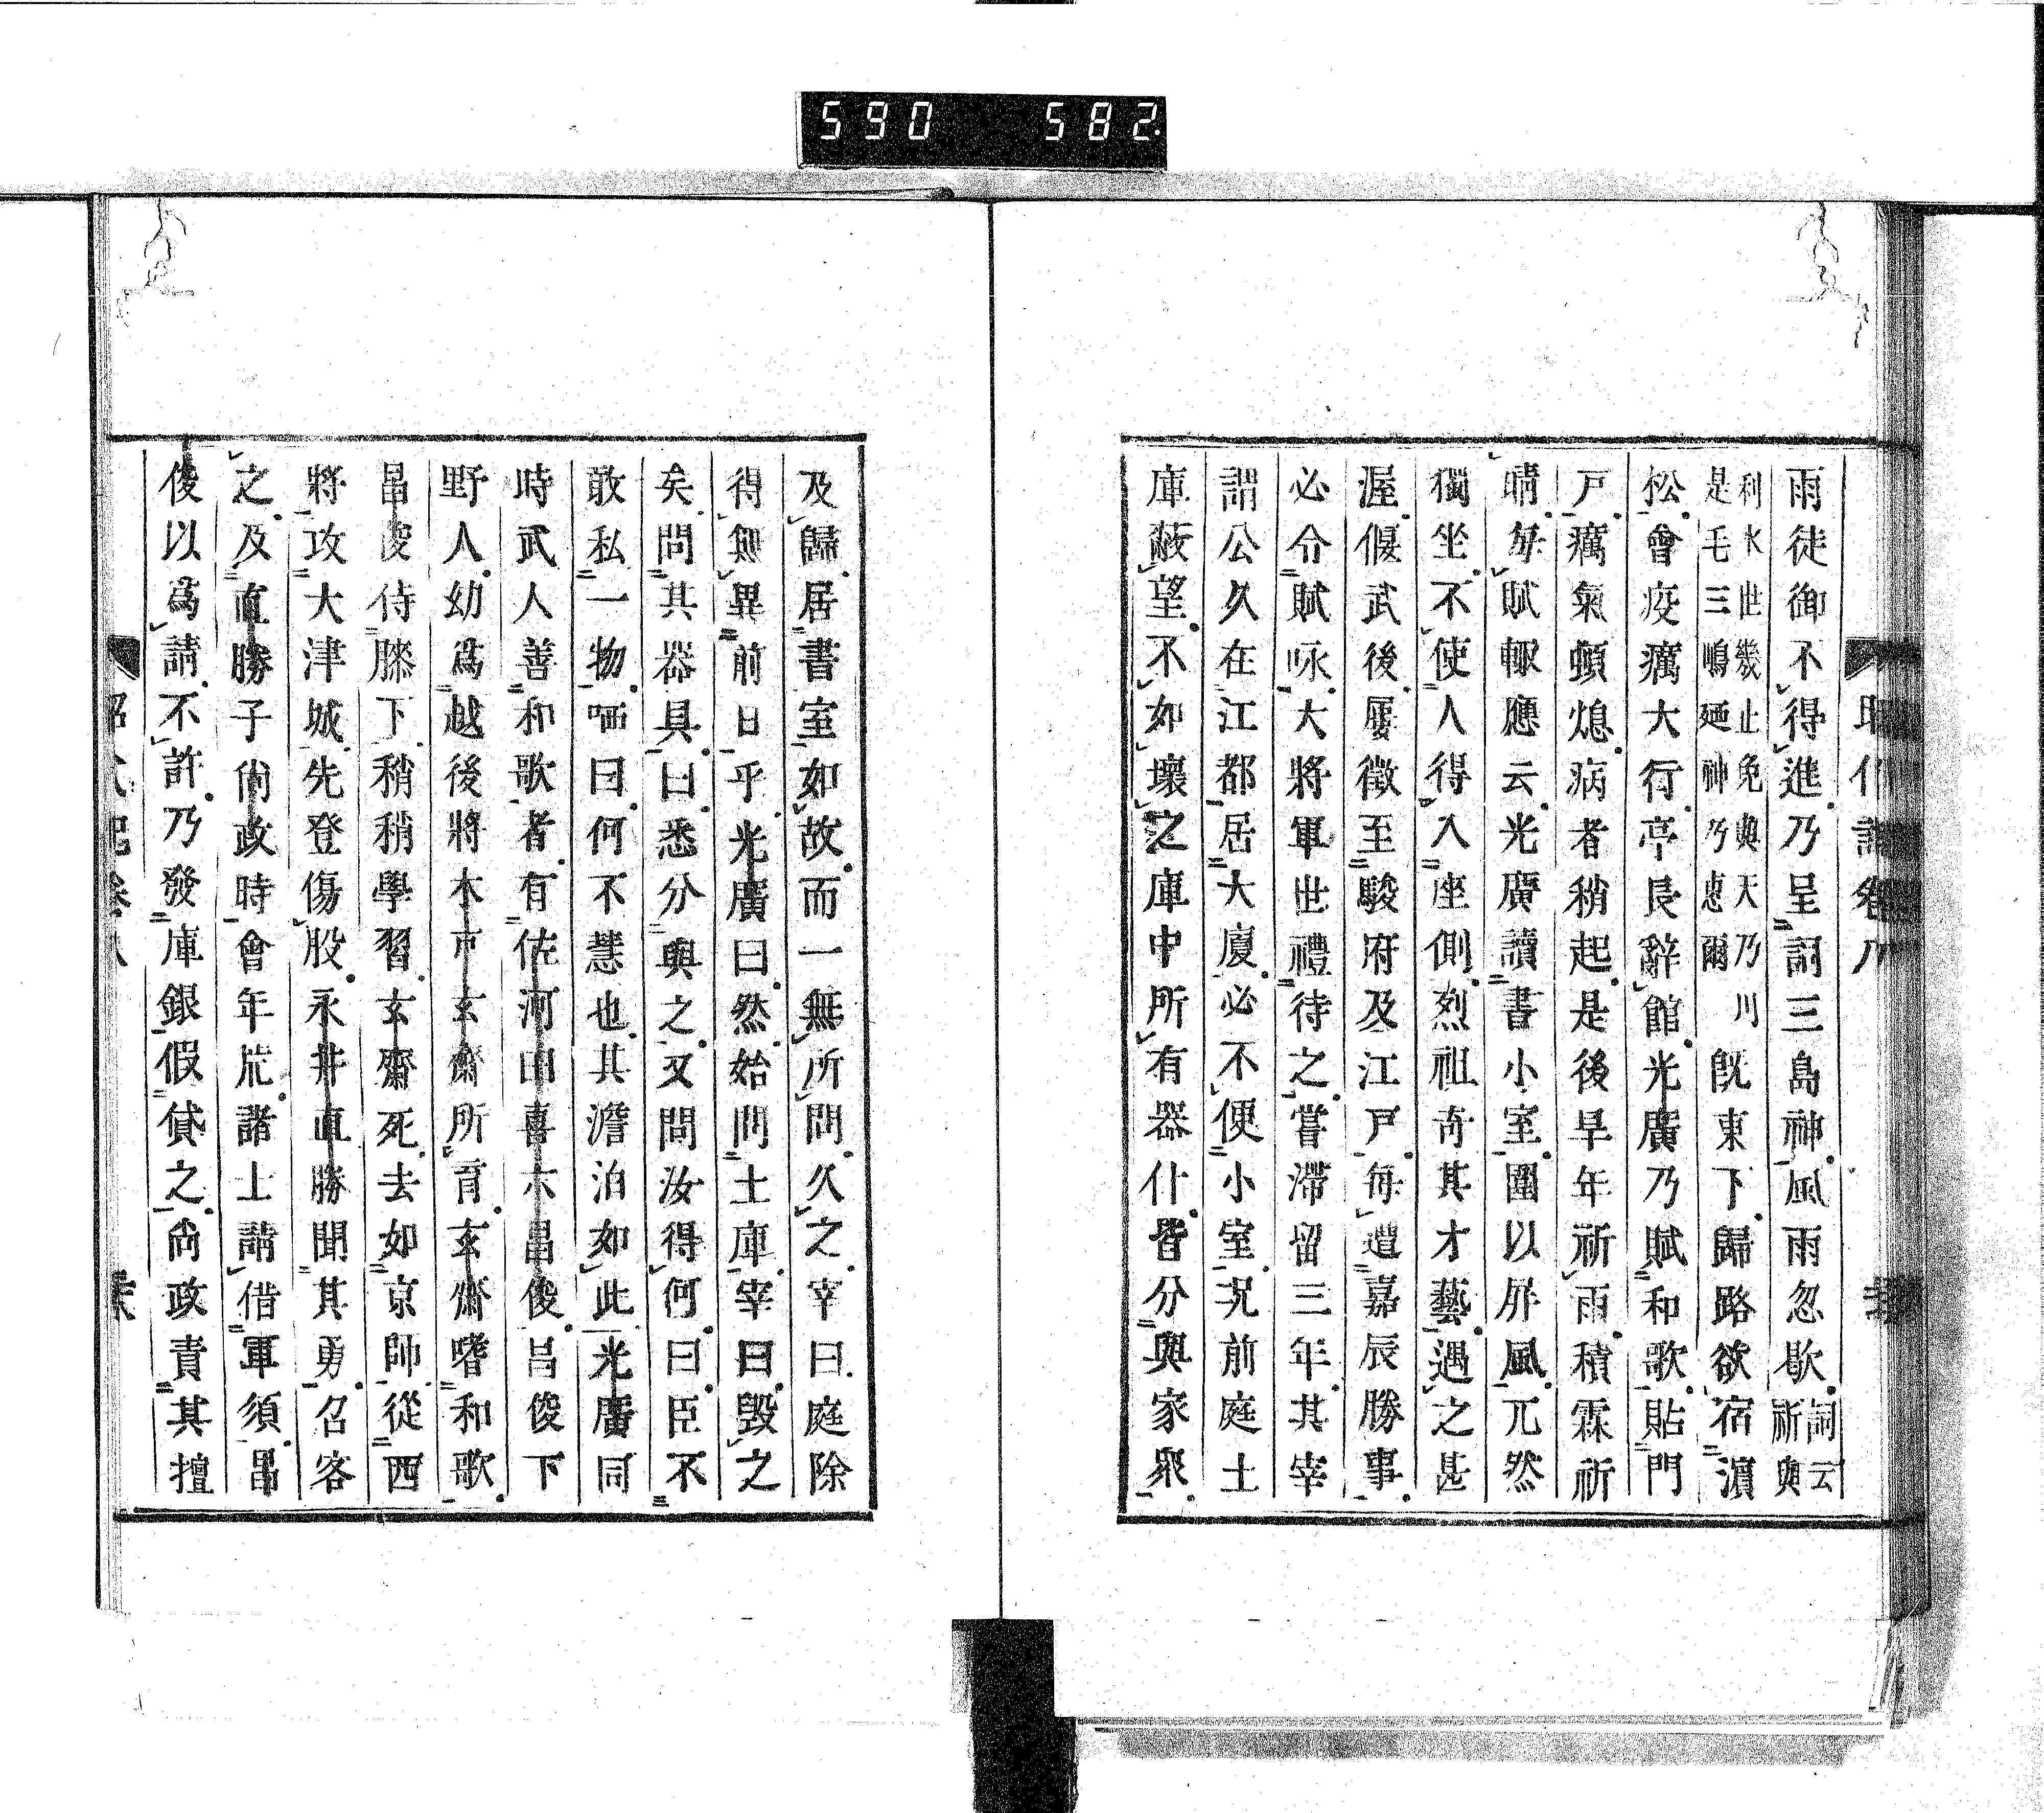 590 582.
雨徒御不得進乃呈詞三島神風雨忽歇詞云祈與
利水世幾止免與天乃川是毛三嶋廼神乃惠爾既東下歸路欲宿濵
松會疫癘大行亭長辭館光廣乃賦和歌貼門
戸癘氣頓熄病者稍起是後旱年祈雨積霖祈
晴每賦輙應云光廣讀書小室圍以屏風兀然
獨坐不使人得入座側烈祖奇其才藝遇之甚
渥偃武後屢徵至駿府及江戸每遭嘉辰勝事
必令賦咏大將軍世禮待之嘗滯留三年其宰
謂公久在江都居大廈必不便小室況前庭土
庫蔽望不如壞之庫中所有器什皆分與家衆
及歸居書室如故而一無所問久之宰曰庭除
得無異前日乎光廣曰然始問土庫宰曰毀之
矣問其器具曰悉分與之又問汝得何曰臣不
敢私一物哂曰何不慧也其澹泊如此光廣同
時武人善和歌者有佐河田喜六昌俊昌俊下
野人幼爲越後將木戸玄齋所育玄齋嗜和歌
昌俊侍膝下稍稍學習玄齋死去如京師從西
將攻大津城先登傷股永井直勝聞其勇召客
之及直勝子尚政時會年荒諸士請借軍須昌
俊以爲請不許乃發庫銀假貸之尚政責其擅